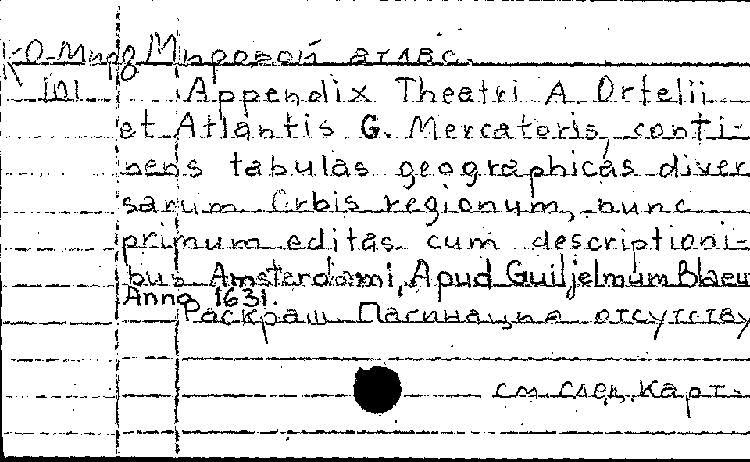 КО-Мир Мировой атлас.
101 Appendix Theatri A Ortelii
et Atlantis G. Mercatoris, conti-
nens tabulas geographicas diver
sarum Orbis regionum, nunc
primum editas cum descriptioni-
bus Amsterdami, Apud Guiljelmum Blaeu
Anno 1631.
Раскраш. Пагинация отсутству
см след. карт.